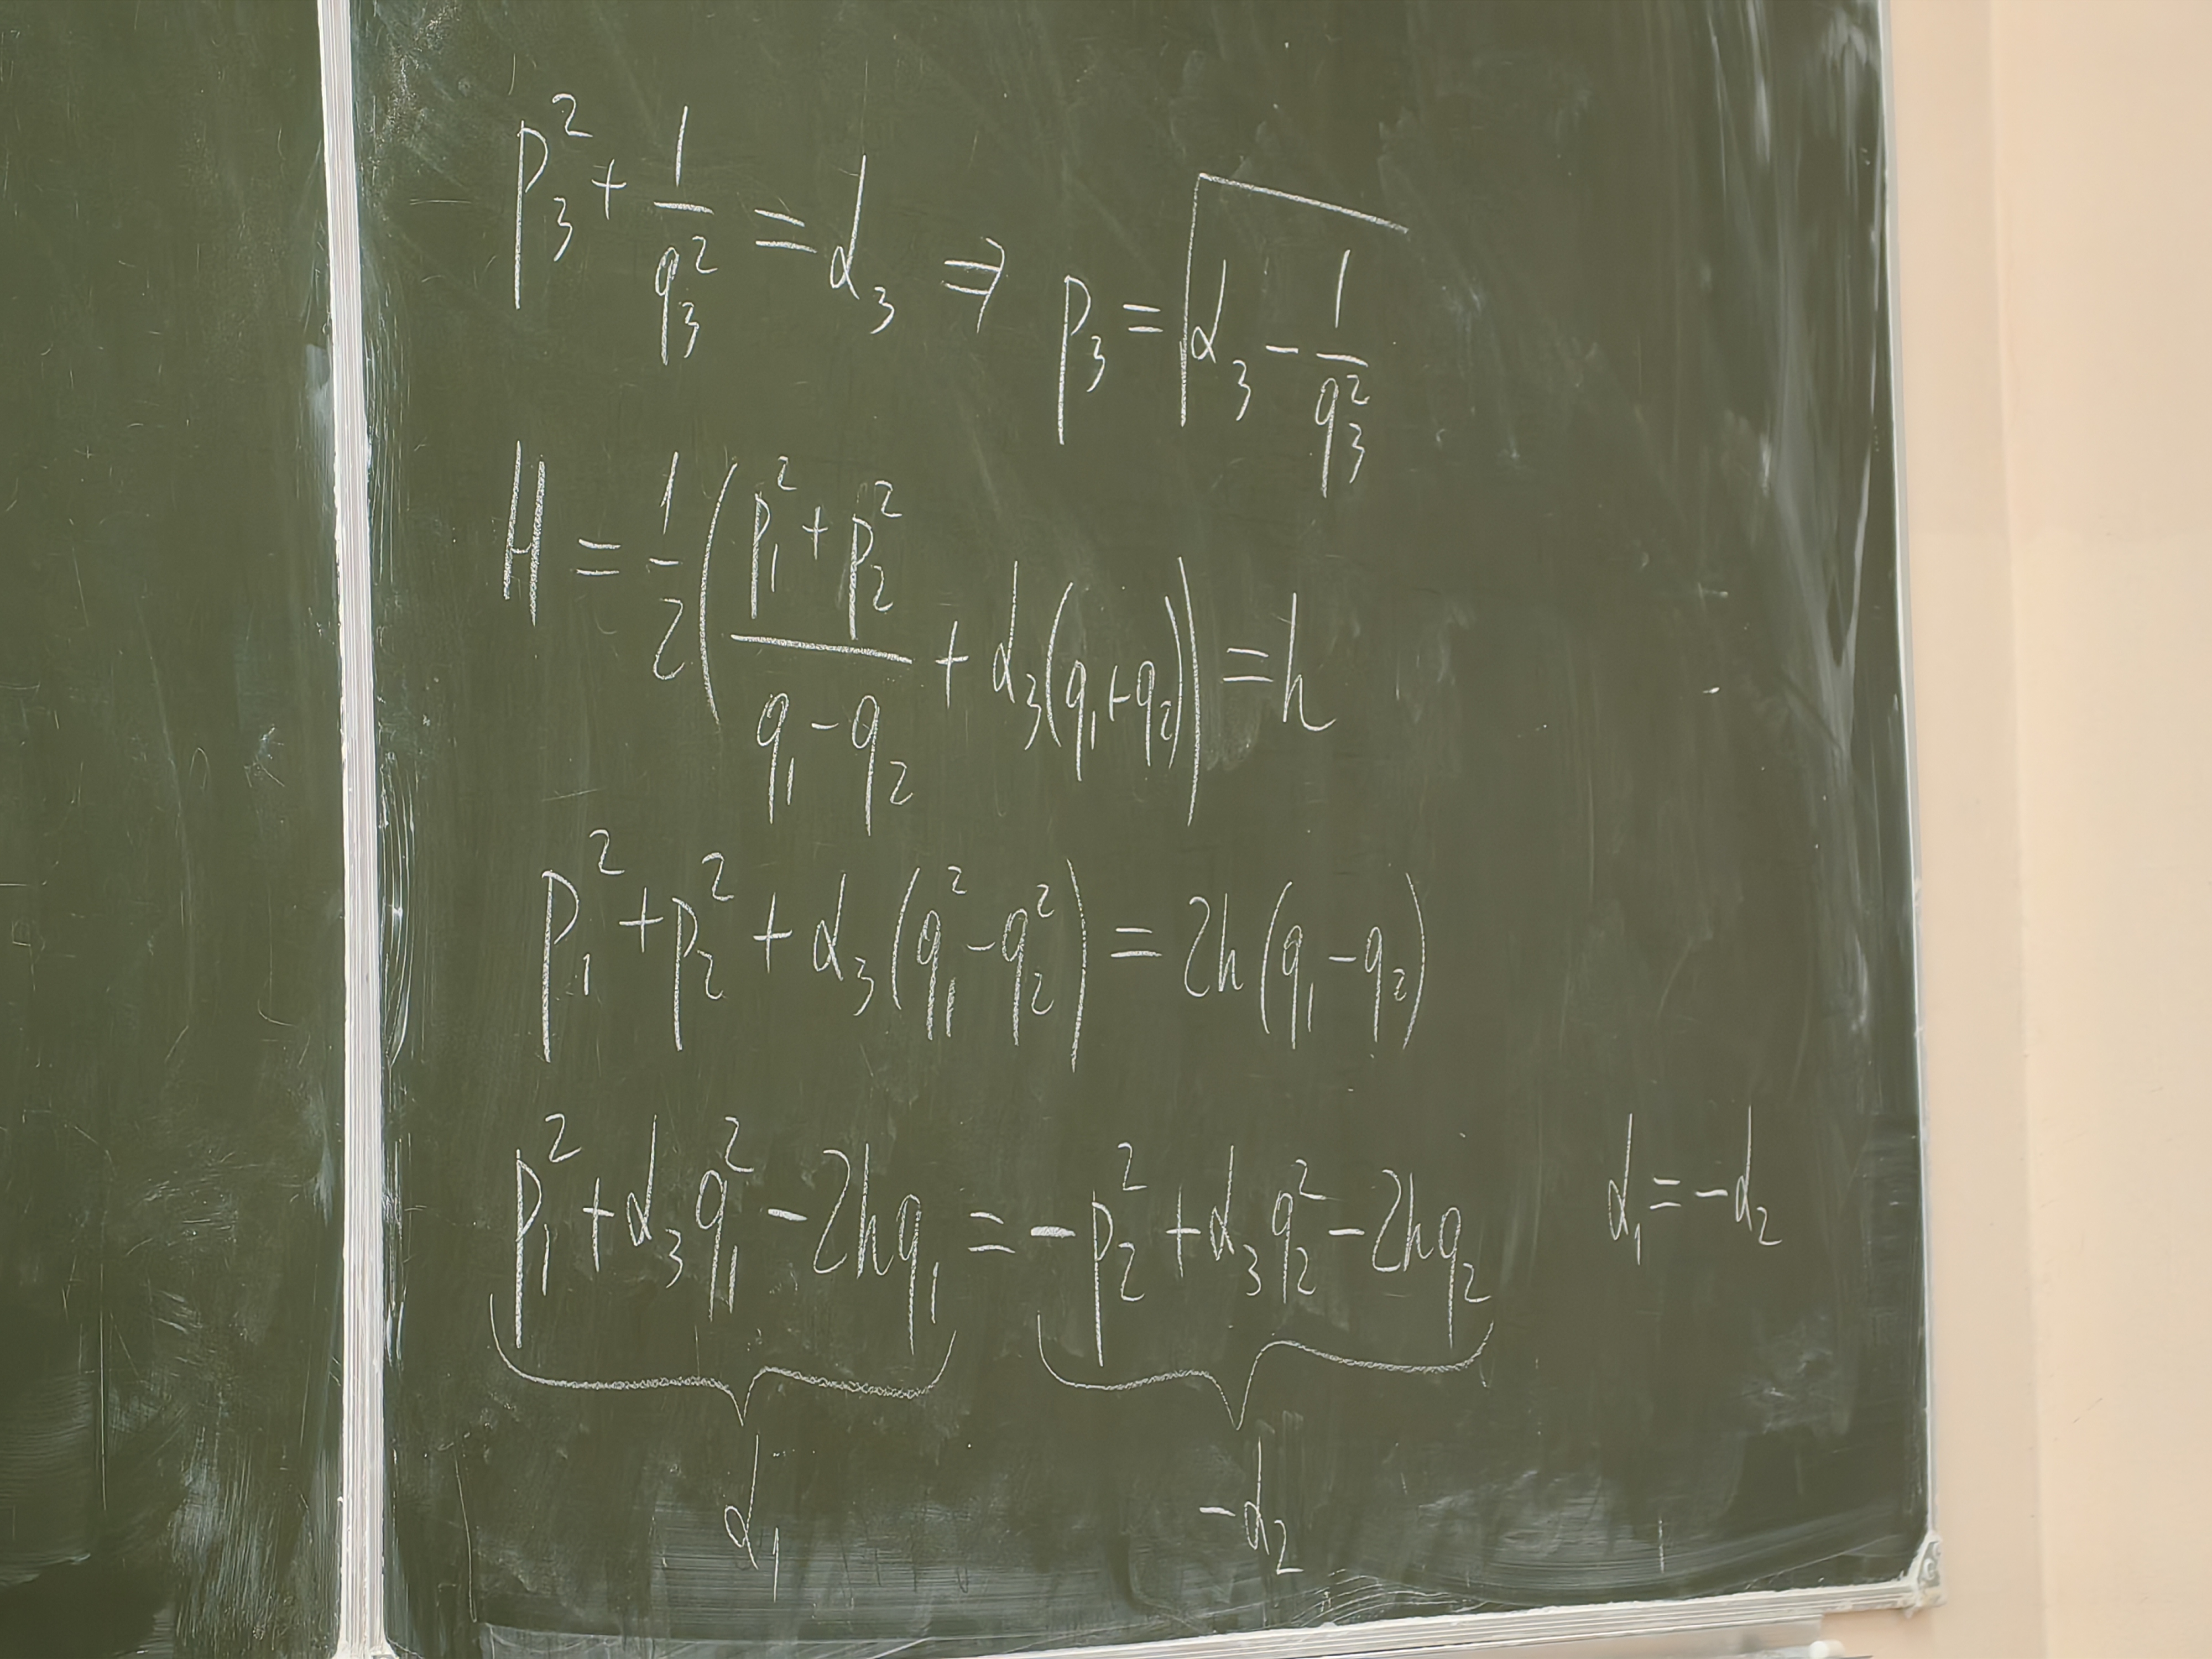 p₃² + 1/q₃² = α₃ ⇒ p₃ = √(α₃ − 1/q₃²)
H = 1/2 ( (p₁² + p₂²)/(q₁ − q₂) + α₃(q₁+q₂) ) = h
p₁² + p₂² + α₃(q₁² − q₂²) = 2h(q₁ − q₂)
p₁² + α₃q₁² − 2hq₁ = −p₂² + α₃q₂² − 2hq₂ α₁ = −α₂
α₁ −α₂